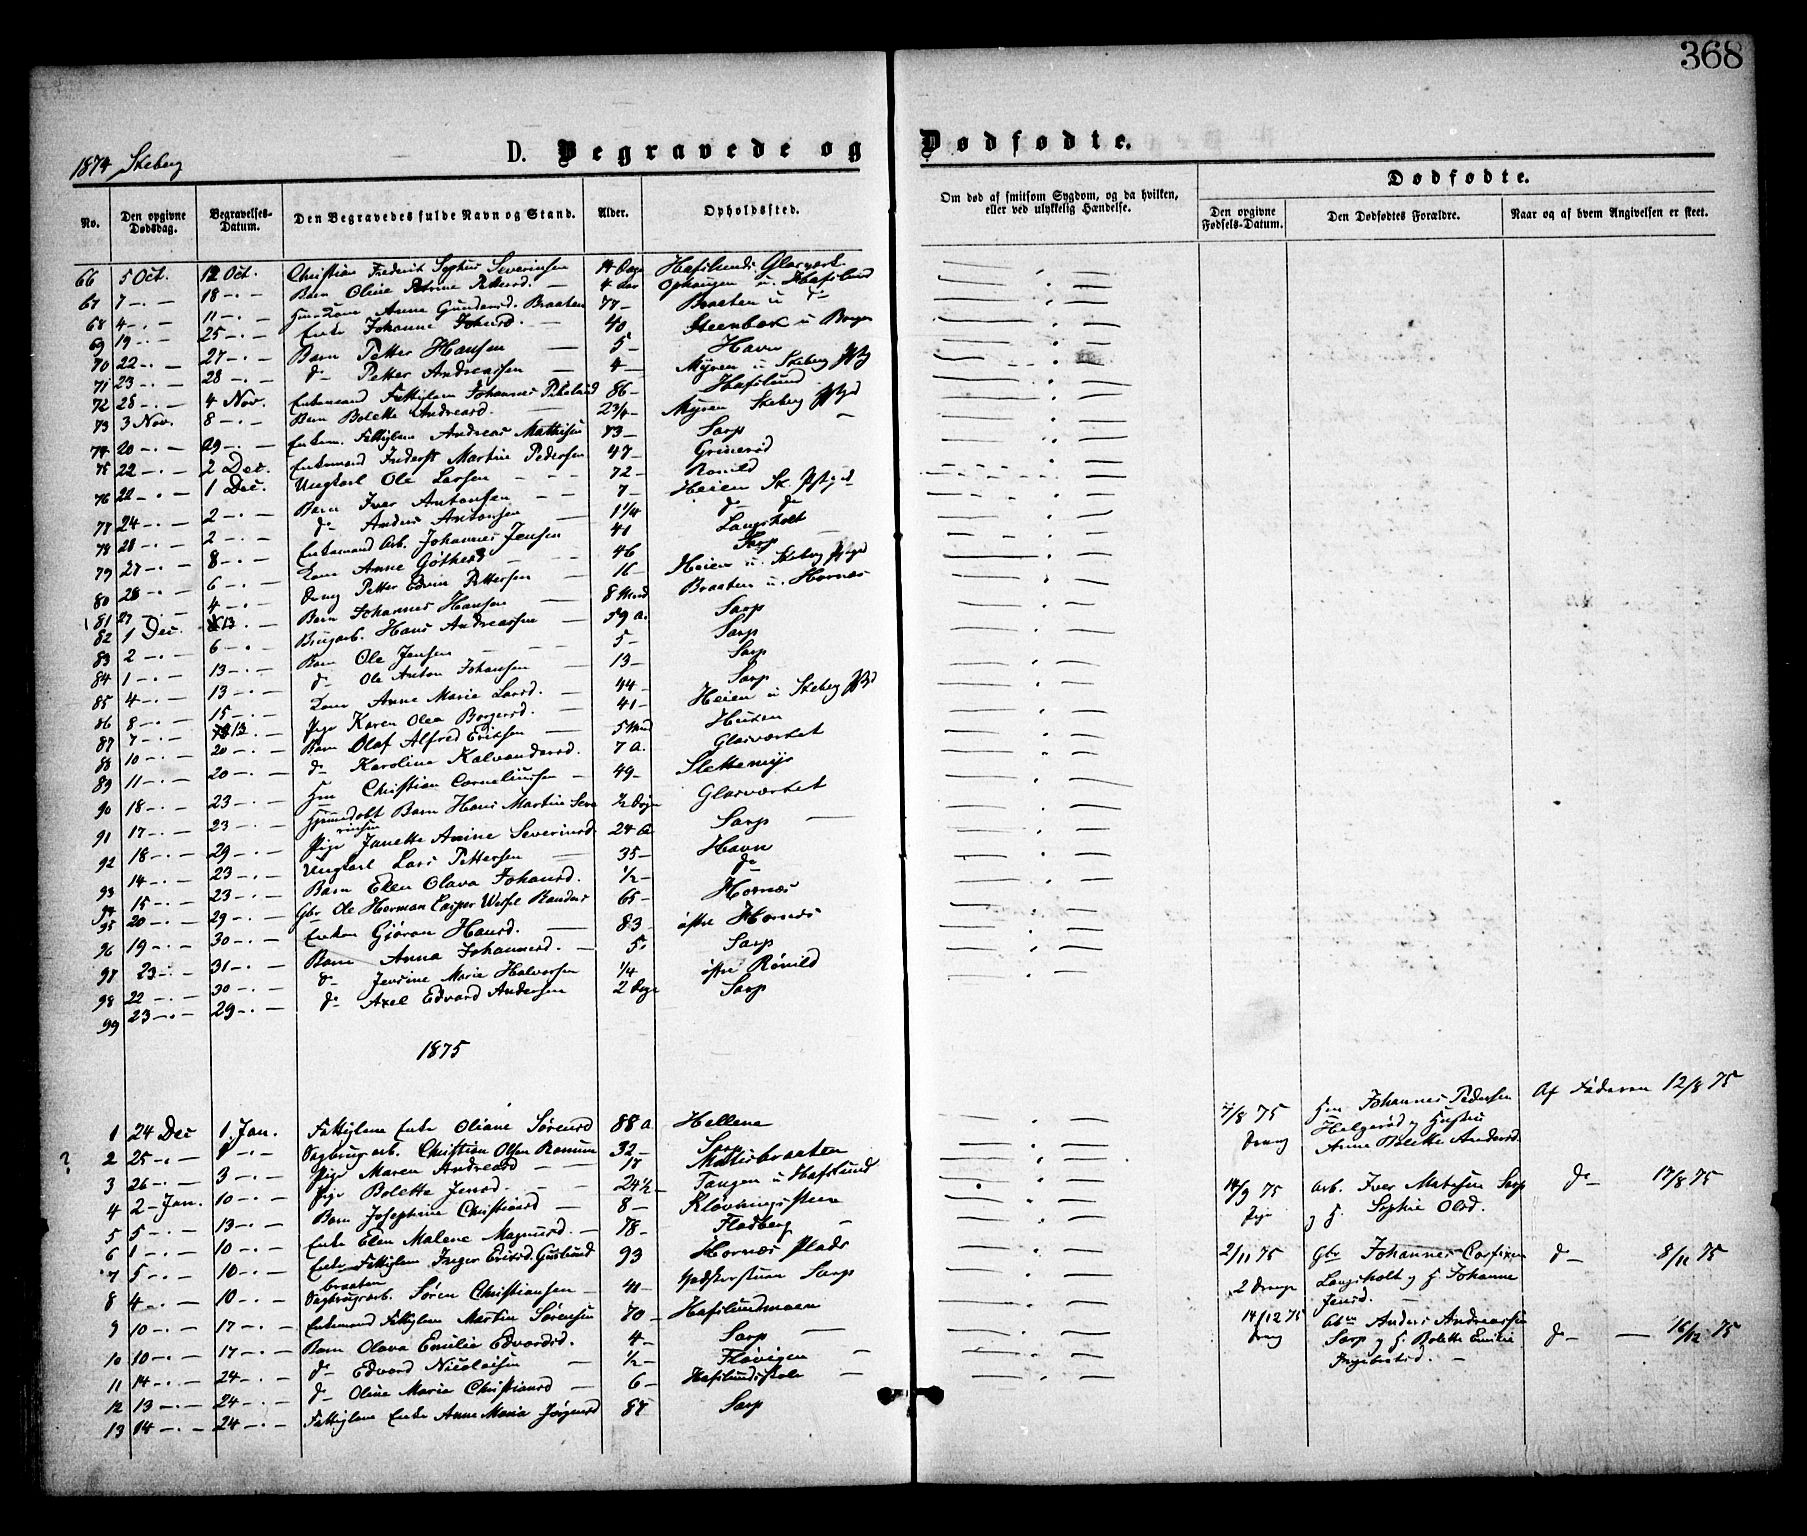 368
1874 Skeberg
D. Begravede og Dødfødte.
No. Den opgivne Dødsdag. Begravelses-Datum. Den Begravedes fulde Navn og Stand. Alder. Opholdssted. Om død af smitsom Sygdom, og da hvilken, eller ved ulykkelig Hændelse. Dødfødte. Den opgivne Fødsels-Datum. Den Dødfødtes Forældre. Naar og af hvem Angivelsen er skeet.
66 5 Oct. 12 Oct. Christian Frederik Sophus Severinsen 14 Dage Hafslunds Glasværk
67 7 -"- 18 -"- Barn Oline Petrine Pettersd. 4 Aar Ophaugen u. Hafslund
68 4 -"- 11 -"- Kone Anne Gundersd. Braaten 77 - Braaten u do
69 19 -"- 25 -"- Enke Johanne Johnsd. 40 Steenbæk u Borgen
70 22 -"- 27 -"- Barn Petter Hansen 5 - Havn
71 23 -"- 28 -"- do Petter Andreassen 4 - Myren u Skeberg
72 28 -"- 4 Nov. Enkemand Fattiglem Johannes 86 - Hafslund
73 3 Nov. 8 -"- Barn Bolette Andreasd. 2 3/4 - Myren Skeberg
74 20 -"- 29 -"- Enkem. Fattiglem Andreas Mathisen 73 - Sarp
75 22 -"- 2 Dec. Enkemand Inderst Martin Pedersen 47 - Grinerød
76 22 -"- 1 Dec. Ungkarl Ole Larsen 72 - Rønild
77 24 -"- 2 -"- Barn Iver Antonsen 7 - Heien Sk.
78 28 -"- 2 -"- do Anders Antonsen 1 1/4 do do
79 27 -"- 8 -"- Enkemand Arb. Johannes Jensen 41 Langsholt
80 28 -"- 6 -"- Kone Anne 46 Sarp
81 27 4 -"- Dreng Petter Edvin Pettersen 16 - Heien u. Skeberg
82 1 Dec. 13 -"- Barn Johannes Hansen 8 Mnd Braaten u. Hornæs
83 2 -"- 6 -"- Brugarb. Hans Andreassen 59 A. Sarp
84 1 -"- 13 -"- Barn Ole Jensen 5 - Sarp
85 4 -"- 13 -"- do Ole Anton Johansen 13 - Sarp
86 8 -"- 15 -"- Kone Anne Marie Larsd. 44 - Sarp
87 7 -"- 13 -"- Pige Karen Olea Borgersd. 41 - Heien u Skeberg
88 10 -"- 20 -"- Barn Olaf Alfred Eriksen 5 Mnd
89 11 -"- 20 -"- do Karoline Kalvandersd. 7 A. Glasværket
90 18 -"- 23 -"- Christian Corneliussen 49 - Slettemyr
91 17 -"- 23 -"- Hjemmedøbt Barn Hans Martin Severinsen 1/2 Døgn Glasværket
92 18 -"- 29 -"- Pige Janette Anine Severinsd. 24 A Sarp
93 14 -"- 23 -"- Ungkarl Lars Pettersen 35 - Havn
94 15 -"- 23 -"- Barn Elen Olava Johansd. 1/2 - do
95 20 -"- 29 -"- Gbr Ole Herman Casper Wessel Randers 65 - Hornæs
96 19 -"- 30 -"- Enken Gjøran Hansd. 83 - østre Hornæs
97 23 -"- 31 -"- Barn Anna Johannesd. 5 - Sarp
98 22 -"- 30 -"- do Jensine Marie Halvorsen 1/4 østre Rønild
99 23 -"- 29 -"- do Axel Edvard Andersen 2 Dage Sarp
1875
1 24 Dec 1. Jan. Fattiglem Enke Oliane Sørensd 88 A Hellene
? 2 25 -"- 1 -"- Dagbrugarb. Christian Olsen 32 - Sarp
3 26 -"- 3 -"- Pige Maren Andreasd 17
4 2 - Jan. 10 -"- Pige Bolette Jensd. 24 1/2 - Tangen u Hafslund
5 5 -"- 13 -"- Barn Josephine Christiansd 8 - Kløvningssteen
6 1 -"- 10 -"- Enke Elen Malene Magnusd. 78 - Fladberg
7 5 -"- 10 -"- Enke Fattiglem Inger Eriksd. Guslundbraaten 93 Hornæs Plads
8 4 -"- 10 -"- Dagbrugarb. Søren Christiansen 41 - Sarp
9 10 -"- 17 -"- Enkemand Fattiglem Martin Sørensen 70 - Hafslundmoen
10 10 -"- 17 -"- Barn Olava Emilie Edvardsd. 4 - Sarp
11 14 -"- 24 -"- do Edvard Nicolaisen 1/2 - Fløvigen
12 13 -"- 24 -"- do Oline Marie Christiansd 6 - Hafslundskole
13 14 -"- 24 -"- Fattiglem Enke Anne Maria Jørgensd 87 Sarp
7/8 75 Johannes Pedersen Af Faderen 12/8 75
Dreng Helgerød og Hustru
Anne Bolette Andersd.
14/9 75 Arb. Iver Mathisen Sarp do - 17/8 75
Pige og H. Sophie Olsd.
2/11 75 Gbr Johannes do - 8/11 75
2 Drenge Langsholt og H. Johanne
Jensd.
14/12 75 Anders Andreassen
Dreng Sarp og H. Bolette Emilie do - 16/12 75
Ingebretsd.